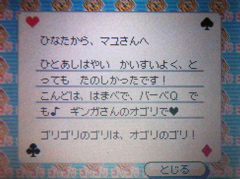 ひなたから、マユさんへ
ひとあしはやい　かいすいよく、と
っても　たのしかったです！
こんどは、はまべで、バーベQ　で
も♪　ギンガさんのオゴリで♥
ゴリゴリのゴリは、オゴリのゴリ！
とじる